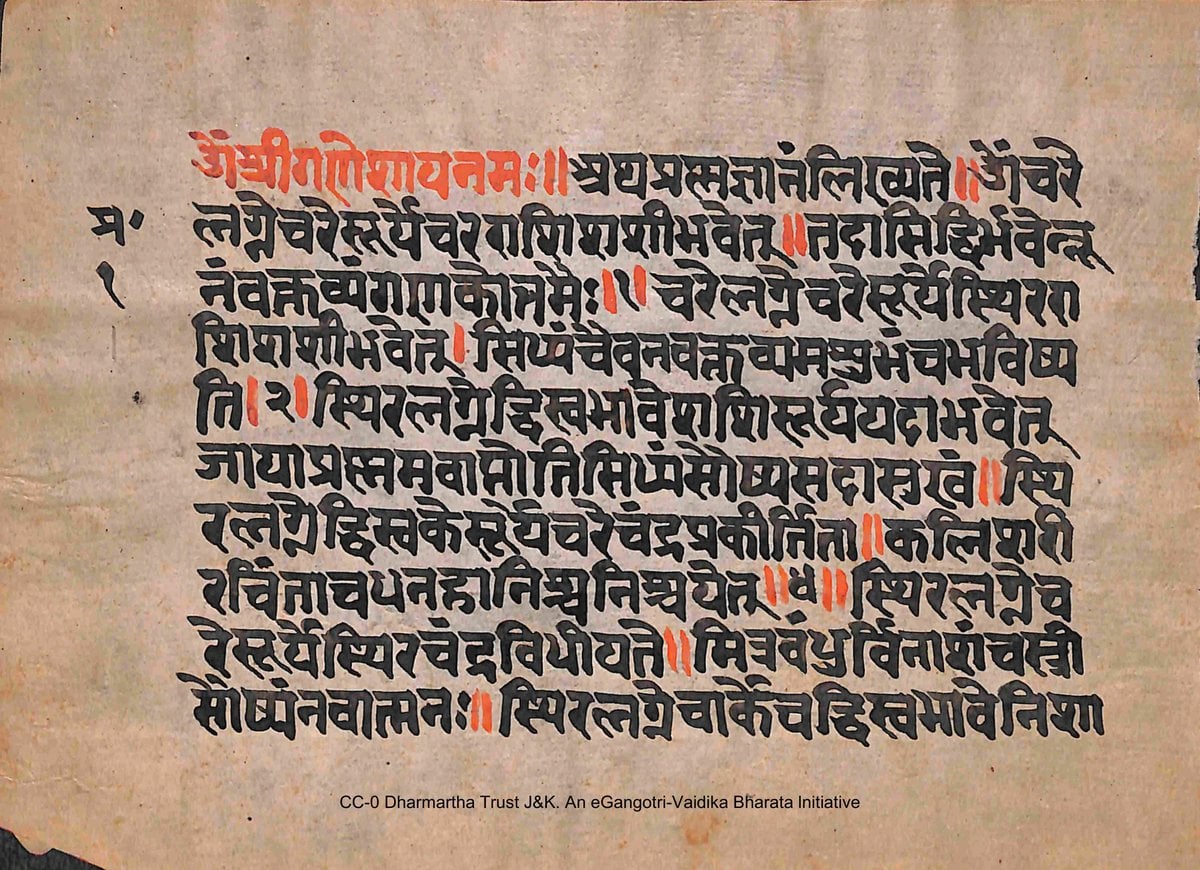 ॐश्रीगणेशायनमः॥ अथप्रस्नज्ञानंलिख्यते॥ ॐचरे
प्र॰ लग्नेचरेसूर्येचरराशिशशीभवेत्॥ तदासिद्धिर्भवेत्नू
१ नंवक्तव्यंगणकोत्तमैः॥१॥ चरेलग्नेचरेसूर्येस्थिररा
शिशशीभवेत्। सिध्यंचैवनवक्तव्यमसुभंचभविष्य
ति।२। स्थिरलग्नेद्विस्वभावेशशिसूर्ययदाभवेत्
जायाप्रस्नमवाप्नोतिसिध्यंसौष्यसदासुखं॥ स्थि
रलग्नेद्विस्वकेसूर्येचरेचंद्रप्रकीर्तिता॥ कलिशरी
रचिंताचधनहानिश्चनिश्चयेत्॥४॥ स्थिरलग्नेच
रेसूर्येस्थिरचंद्रविधीयते॥ मित्रबंधुर्विनाशंचस्त्री
सौष्यंनवात्मनः॥ स्थिरलग्नेचार्केचद्विस्वभावेनिशा
CC-0 Dharmartha Trust J&K. An eGangotri-Vaidika Bharata Initiative